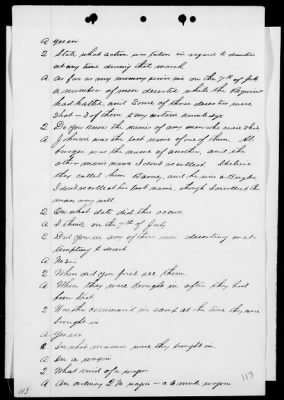 A Yes sir
Q State, what action was taken in regard to deserters
at any time during that march
A As far as my memory serves me on the 7th of July
a number of men deserted while the Regiment
had halted, and some of those deserters were
shot - 3 of them to my certain knowledge
Q Do you know the names of any men who were shot
A Johnson was the last name of one of them.
was the name of another, and the
other man's name I don't recollect. I believe
they called him Barney, and he was a Bugler
I don't recollect his last name, though I recollect the
man very well.
Q On what date did this occur
A I think, on the 7th of July
Q Did you see any of these men deserting or at-
tempting to desert
A No sir
Q When did you first see them.
A When they were brought in after they had
been shot
Q Was the command in camp at the time they were
brought in
A Yes sir
Q In what manner were they brought in.
A In a wagon
Q What kind of a wagon
A An ordinary Q.M. wagon - a 6 mule wagon.
113
113